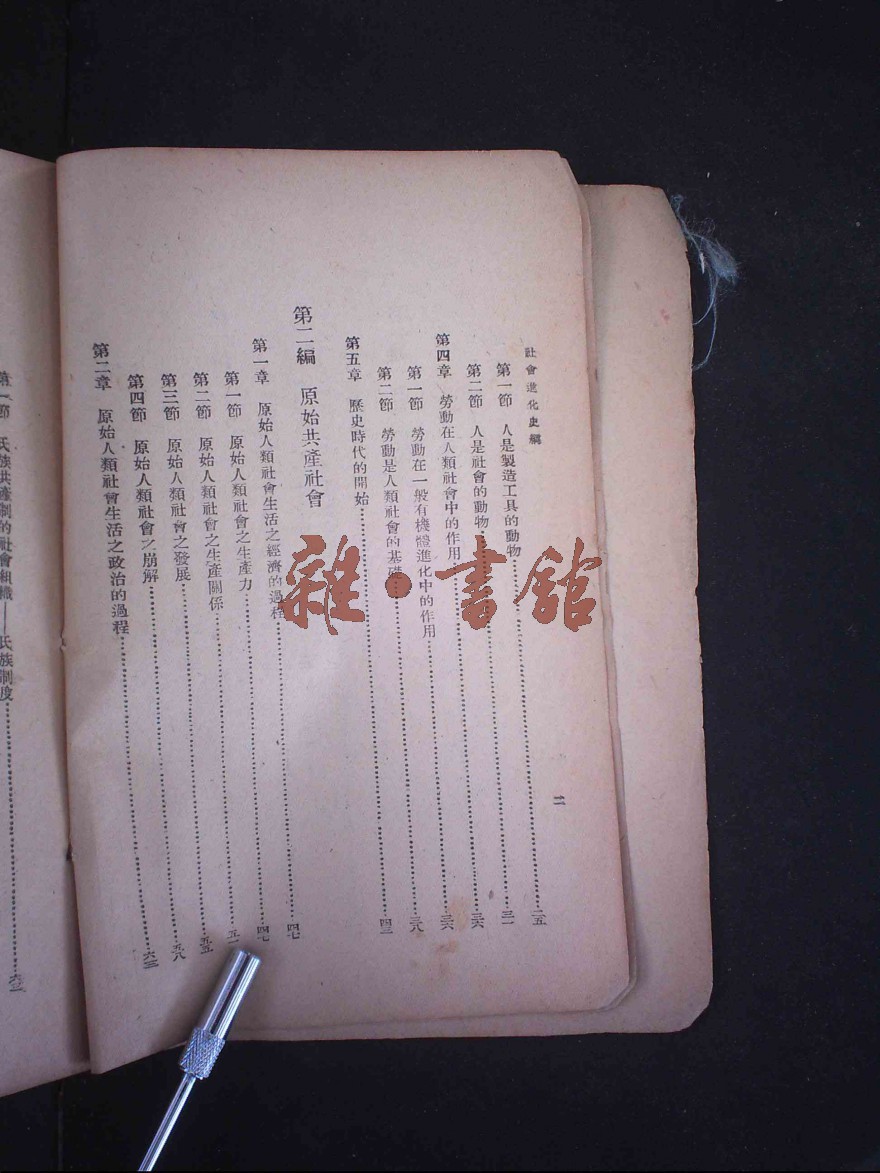 社會進化史綱　二
第一節　人是製造工具的動物……二五
第二節　人是社會的動物……三一
第四章　勞動在人類社會中的作用……三六
第一節　勞動在一般有機體進化中的作用……三六
第二節　勞動是人類社會的基礎……三八
第五章　歷史時代的開始……四三
第二編　原始共產社會
第一章　原始人類社會生活之經濟的過程……四七
第一節　原始人類社會之生產力……四七
第二節　原始人類社會之生產關係……五一
第三節　原始人類社會之發展……五五
第四節　原始人類社會之崩解……五八
第二章　原始人類社會生活之政治的過程……六三
第一節　氏族共產制的社會組織——氏族制度……六三
雜·書館